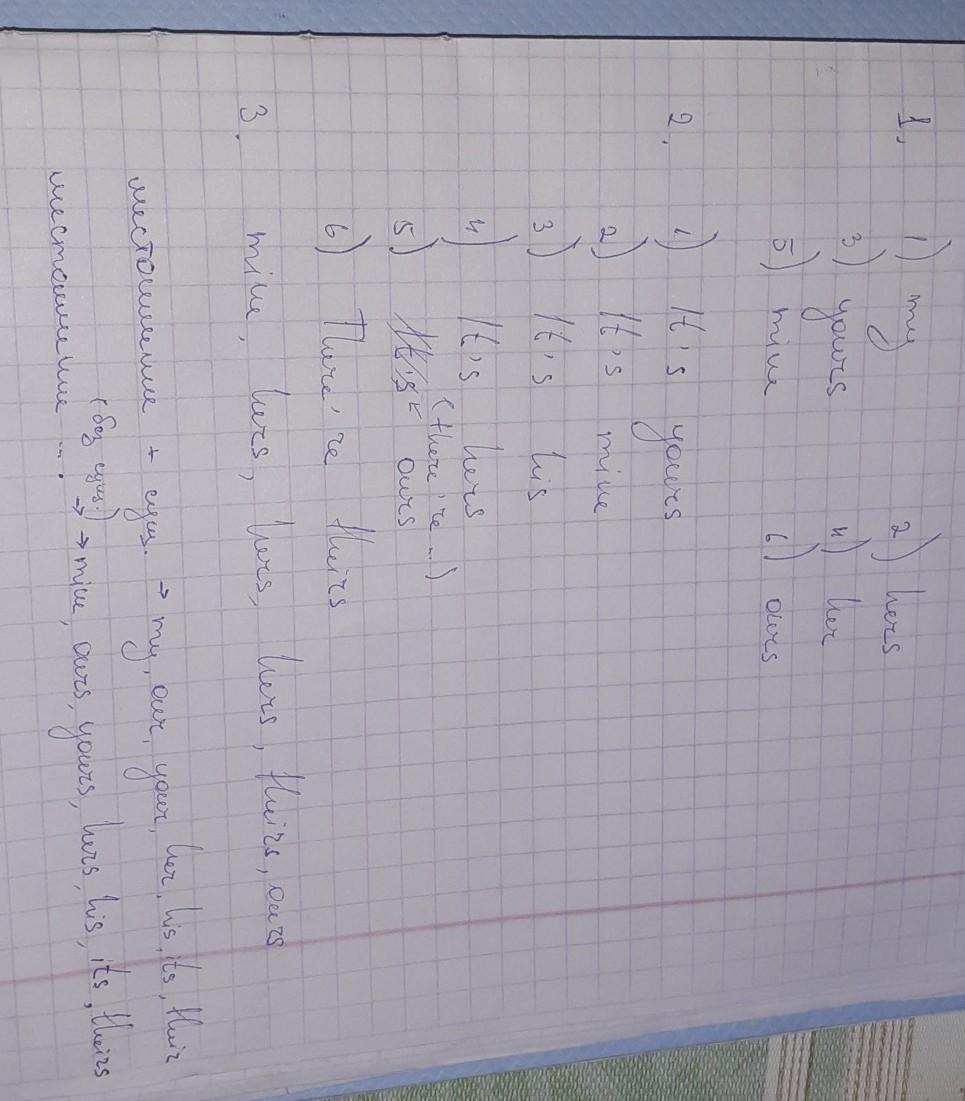 1. 1) my 2) hers
3) yours 4) her
5) mine 6) ours
2. 1) It's yours
2) It's mine
3) It's his
4) It's hers
(there're ...)
5) It's ours
6) There're theirs
3. mine, hers, hers, hers, theirs, ours
местоимение + сущ. → my, our, your, her, his, its, their
(без сущ.)
местоимение ... → → mine, ours, yours, hers, his, its, theirs